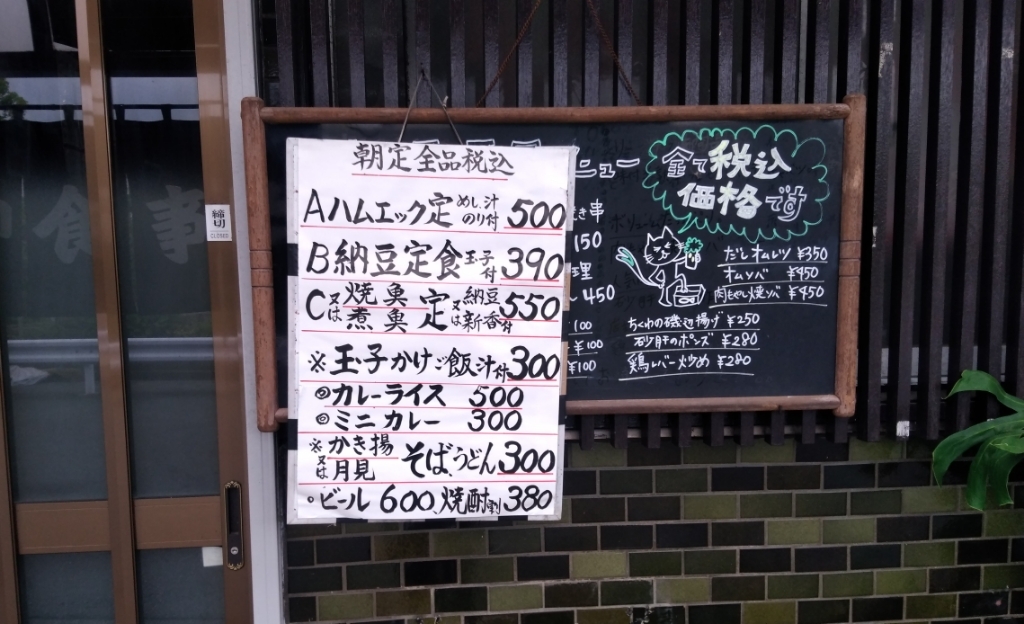 朝定全品税込
Aハムエック定 めし、汁 のり付 500
B納豆定食 玉子付 390
C又は 焼魚 煮魚 定 又は 納豆 新香付 550
※玉子かけご飯汁付300
◎カレーライス 500
◎ミニカレー 300
※かき揚 又は月見 そば、うどん300
◦ビール 600、焼酎割380
ニュー
串
150
理
~450
100
¥100
¥100
全て税込
価格です
だしオムレツ ¥350
オムソバ ¥450
肉もやし焼ソバ ¥450
ちくわの磯辺揚げ ¥250
砂肝のポンズ ¥280
鶏レバー炒め ¥280
食事
締切
CLOSED